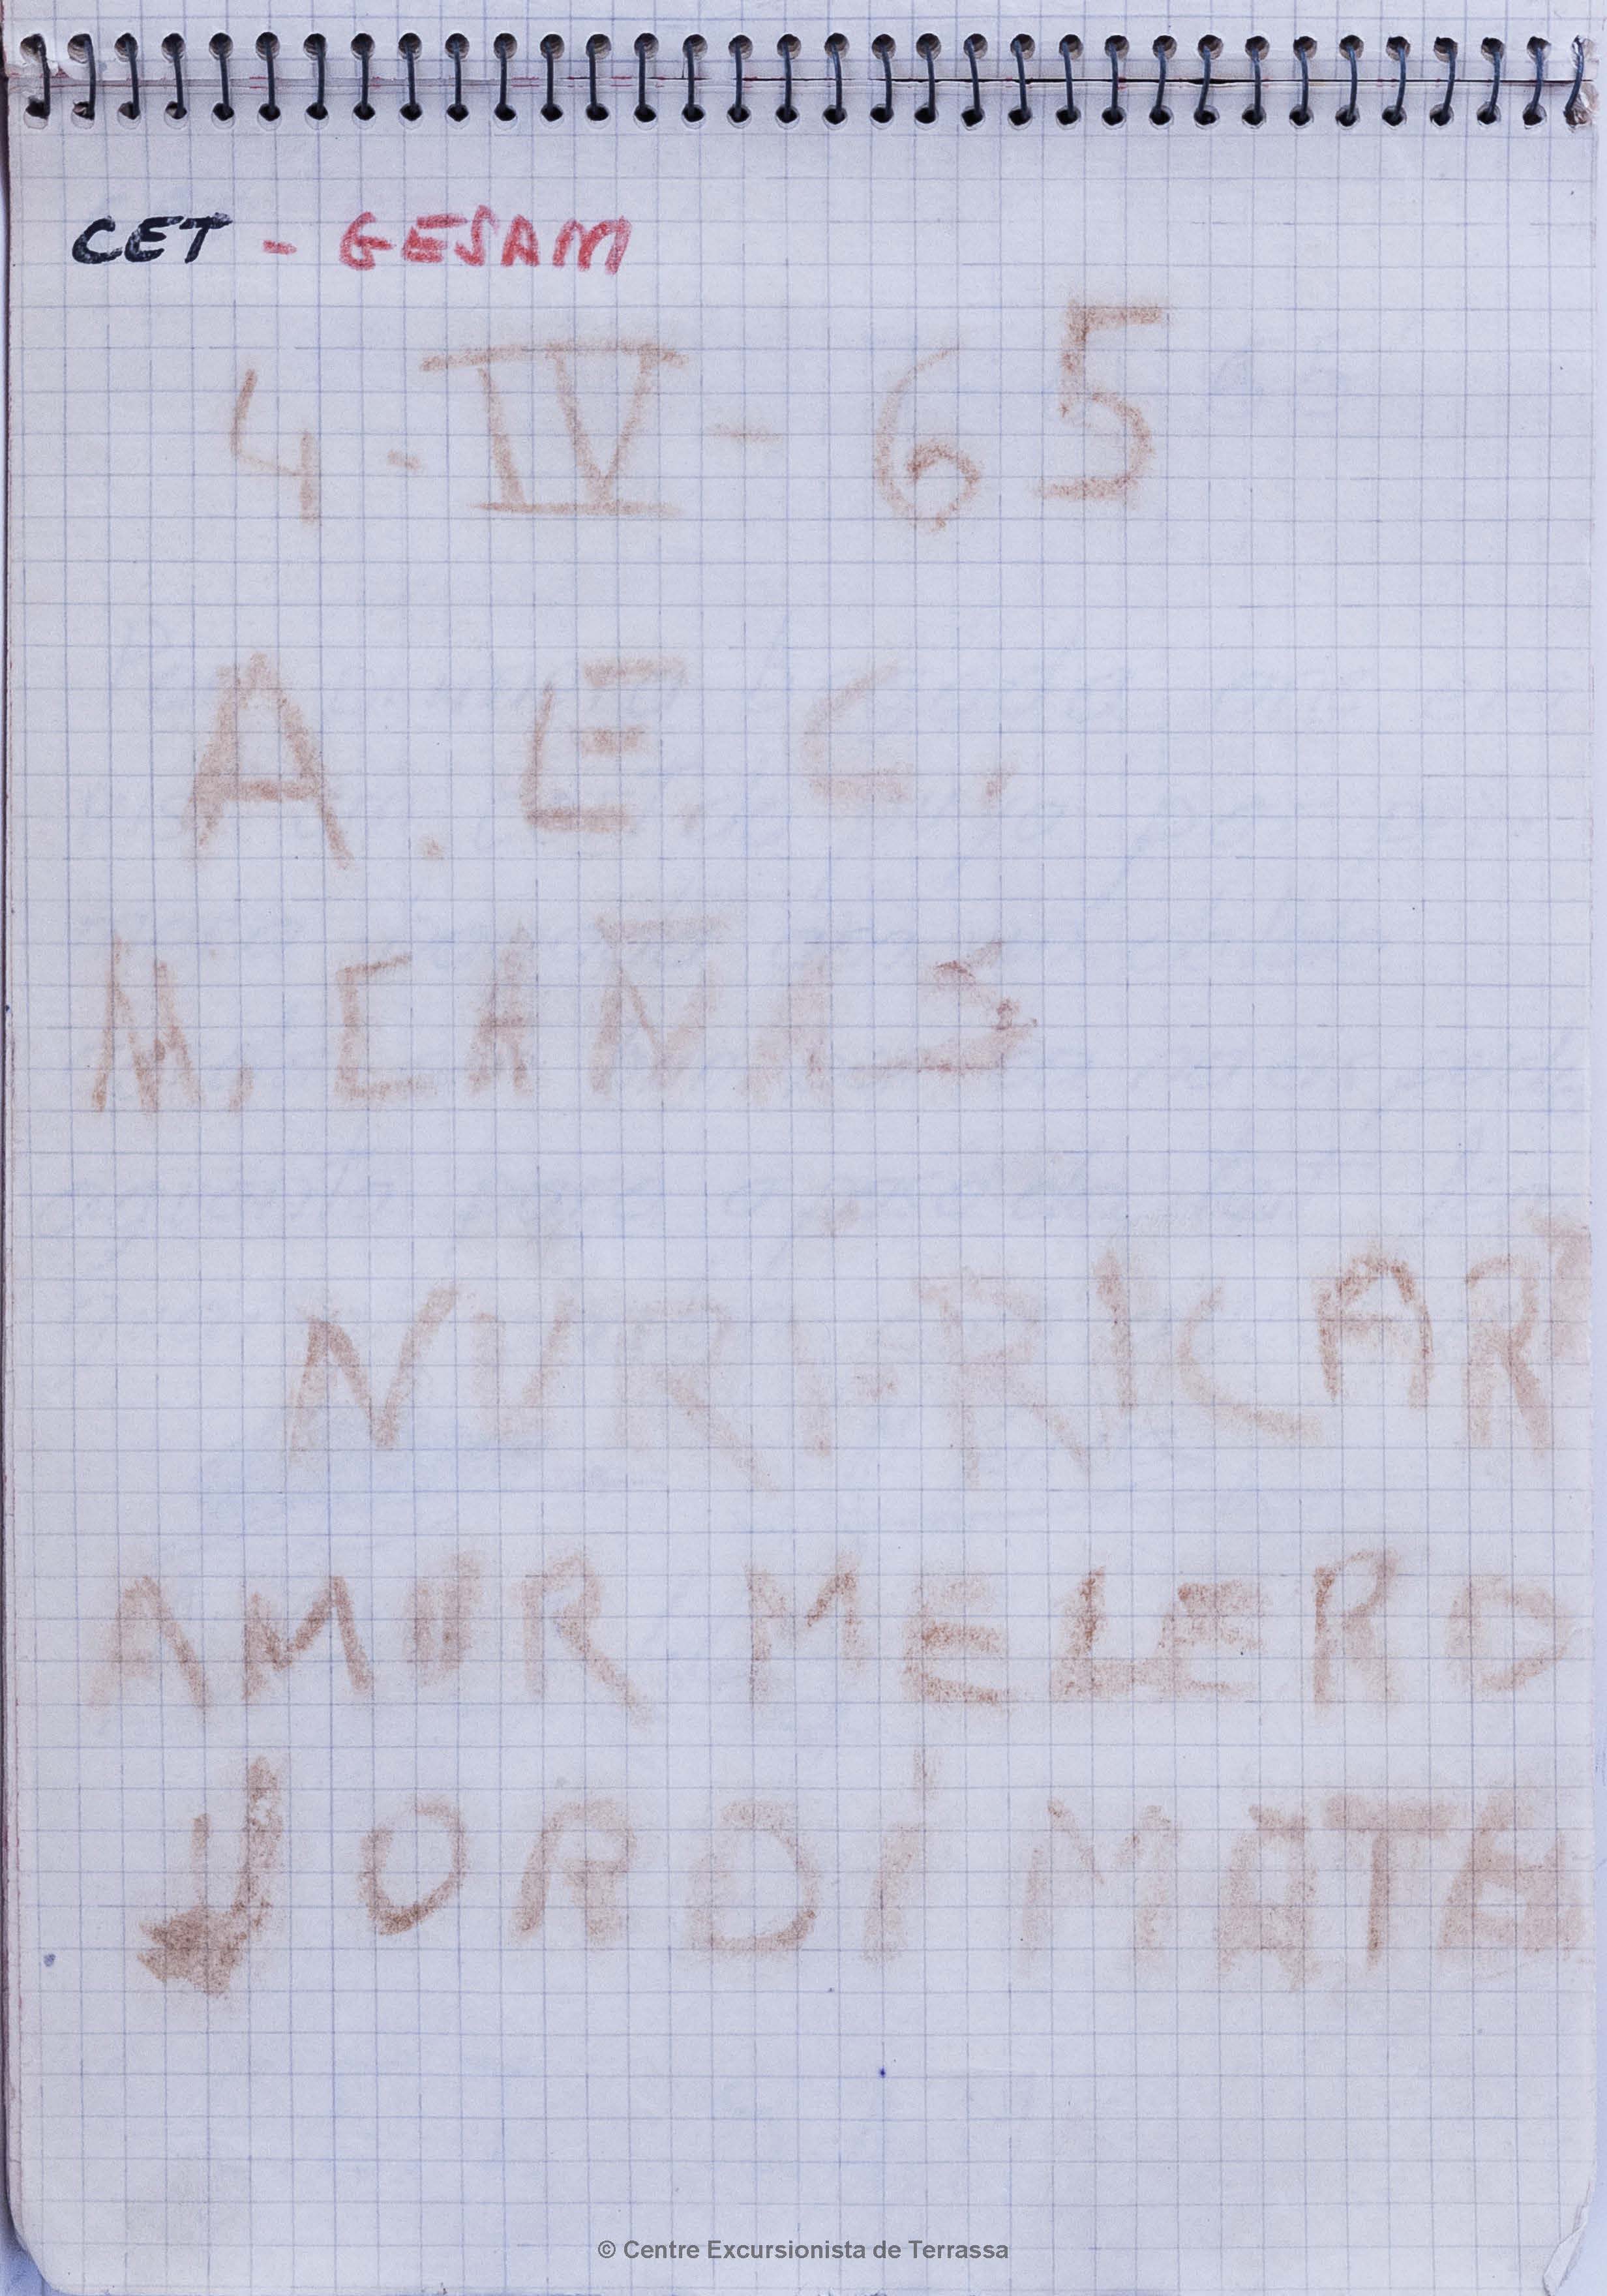 CET - GESAM
4-IV-65
A. E. C.
M. CAÑAS
NURI-RICART
JORDI MATE
© Centre Excursionista de Terrassa